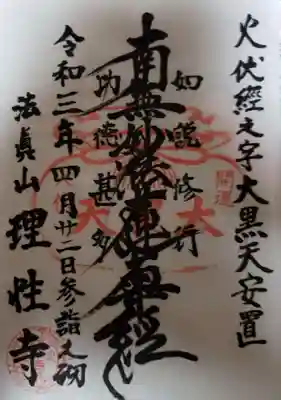 火伏經之字大黒天安置
如説修行
南無妙法蓮華經
功徳甚多
令和三年四月廿二日参詣之砌
法眞山 理性寺
開運